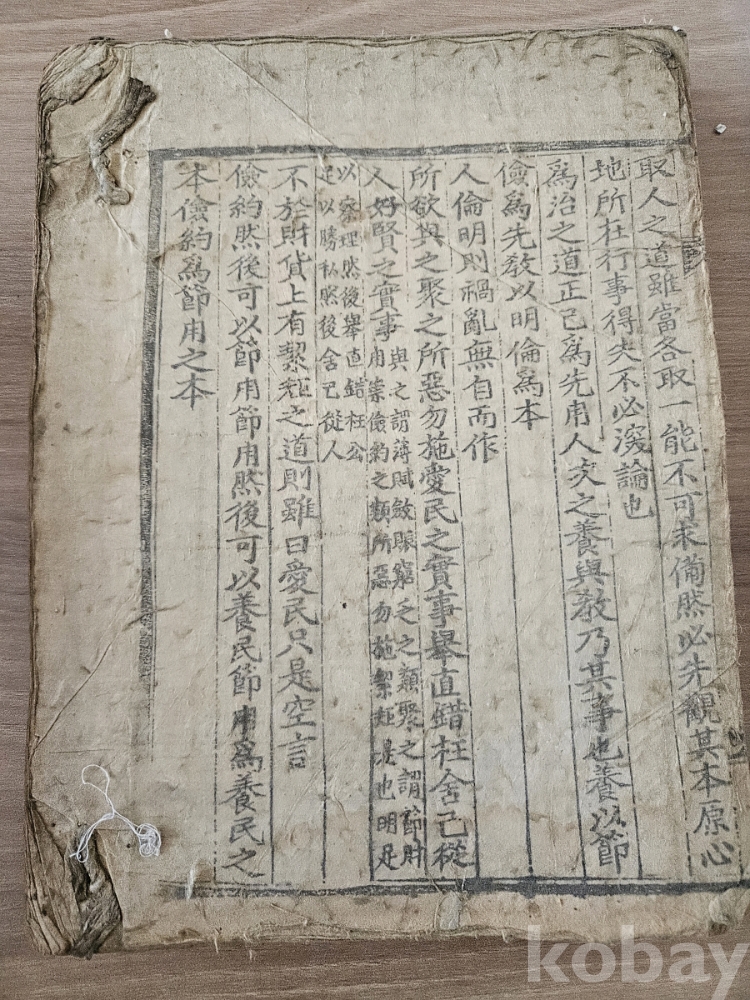 取人之道雖當各取一能不可求備然必先觀其本原心
地所在行事得失不必深論也
爲治之道正己爲先用人次之養與敎乃其事也養以節
儉爲先敎以明倫爲本
人倫明則禍亂無自而作
所欲與之聚之所惡勿施愛民之實事擧直錯枉舍己從
人好賢之實事
與之謂薄賦斂賑窮乏之類聚之謂節財
用崇儉約之類所惡勿施絜矩是也明足
以察理然後擧直錯枉公
足以勝私然後舍己從人
不於財貨上有絜矩之道則雖曰愛民只是空言
儉約然後可以節用節用然後可以養民節用爲養民之
本儉約爲節用之本
kobay